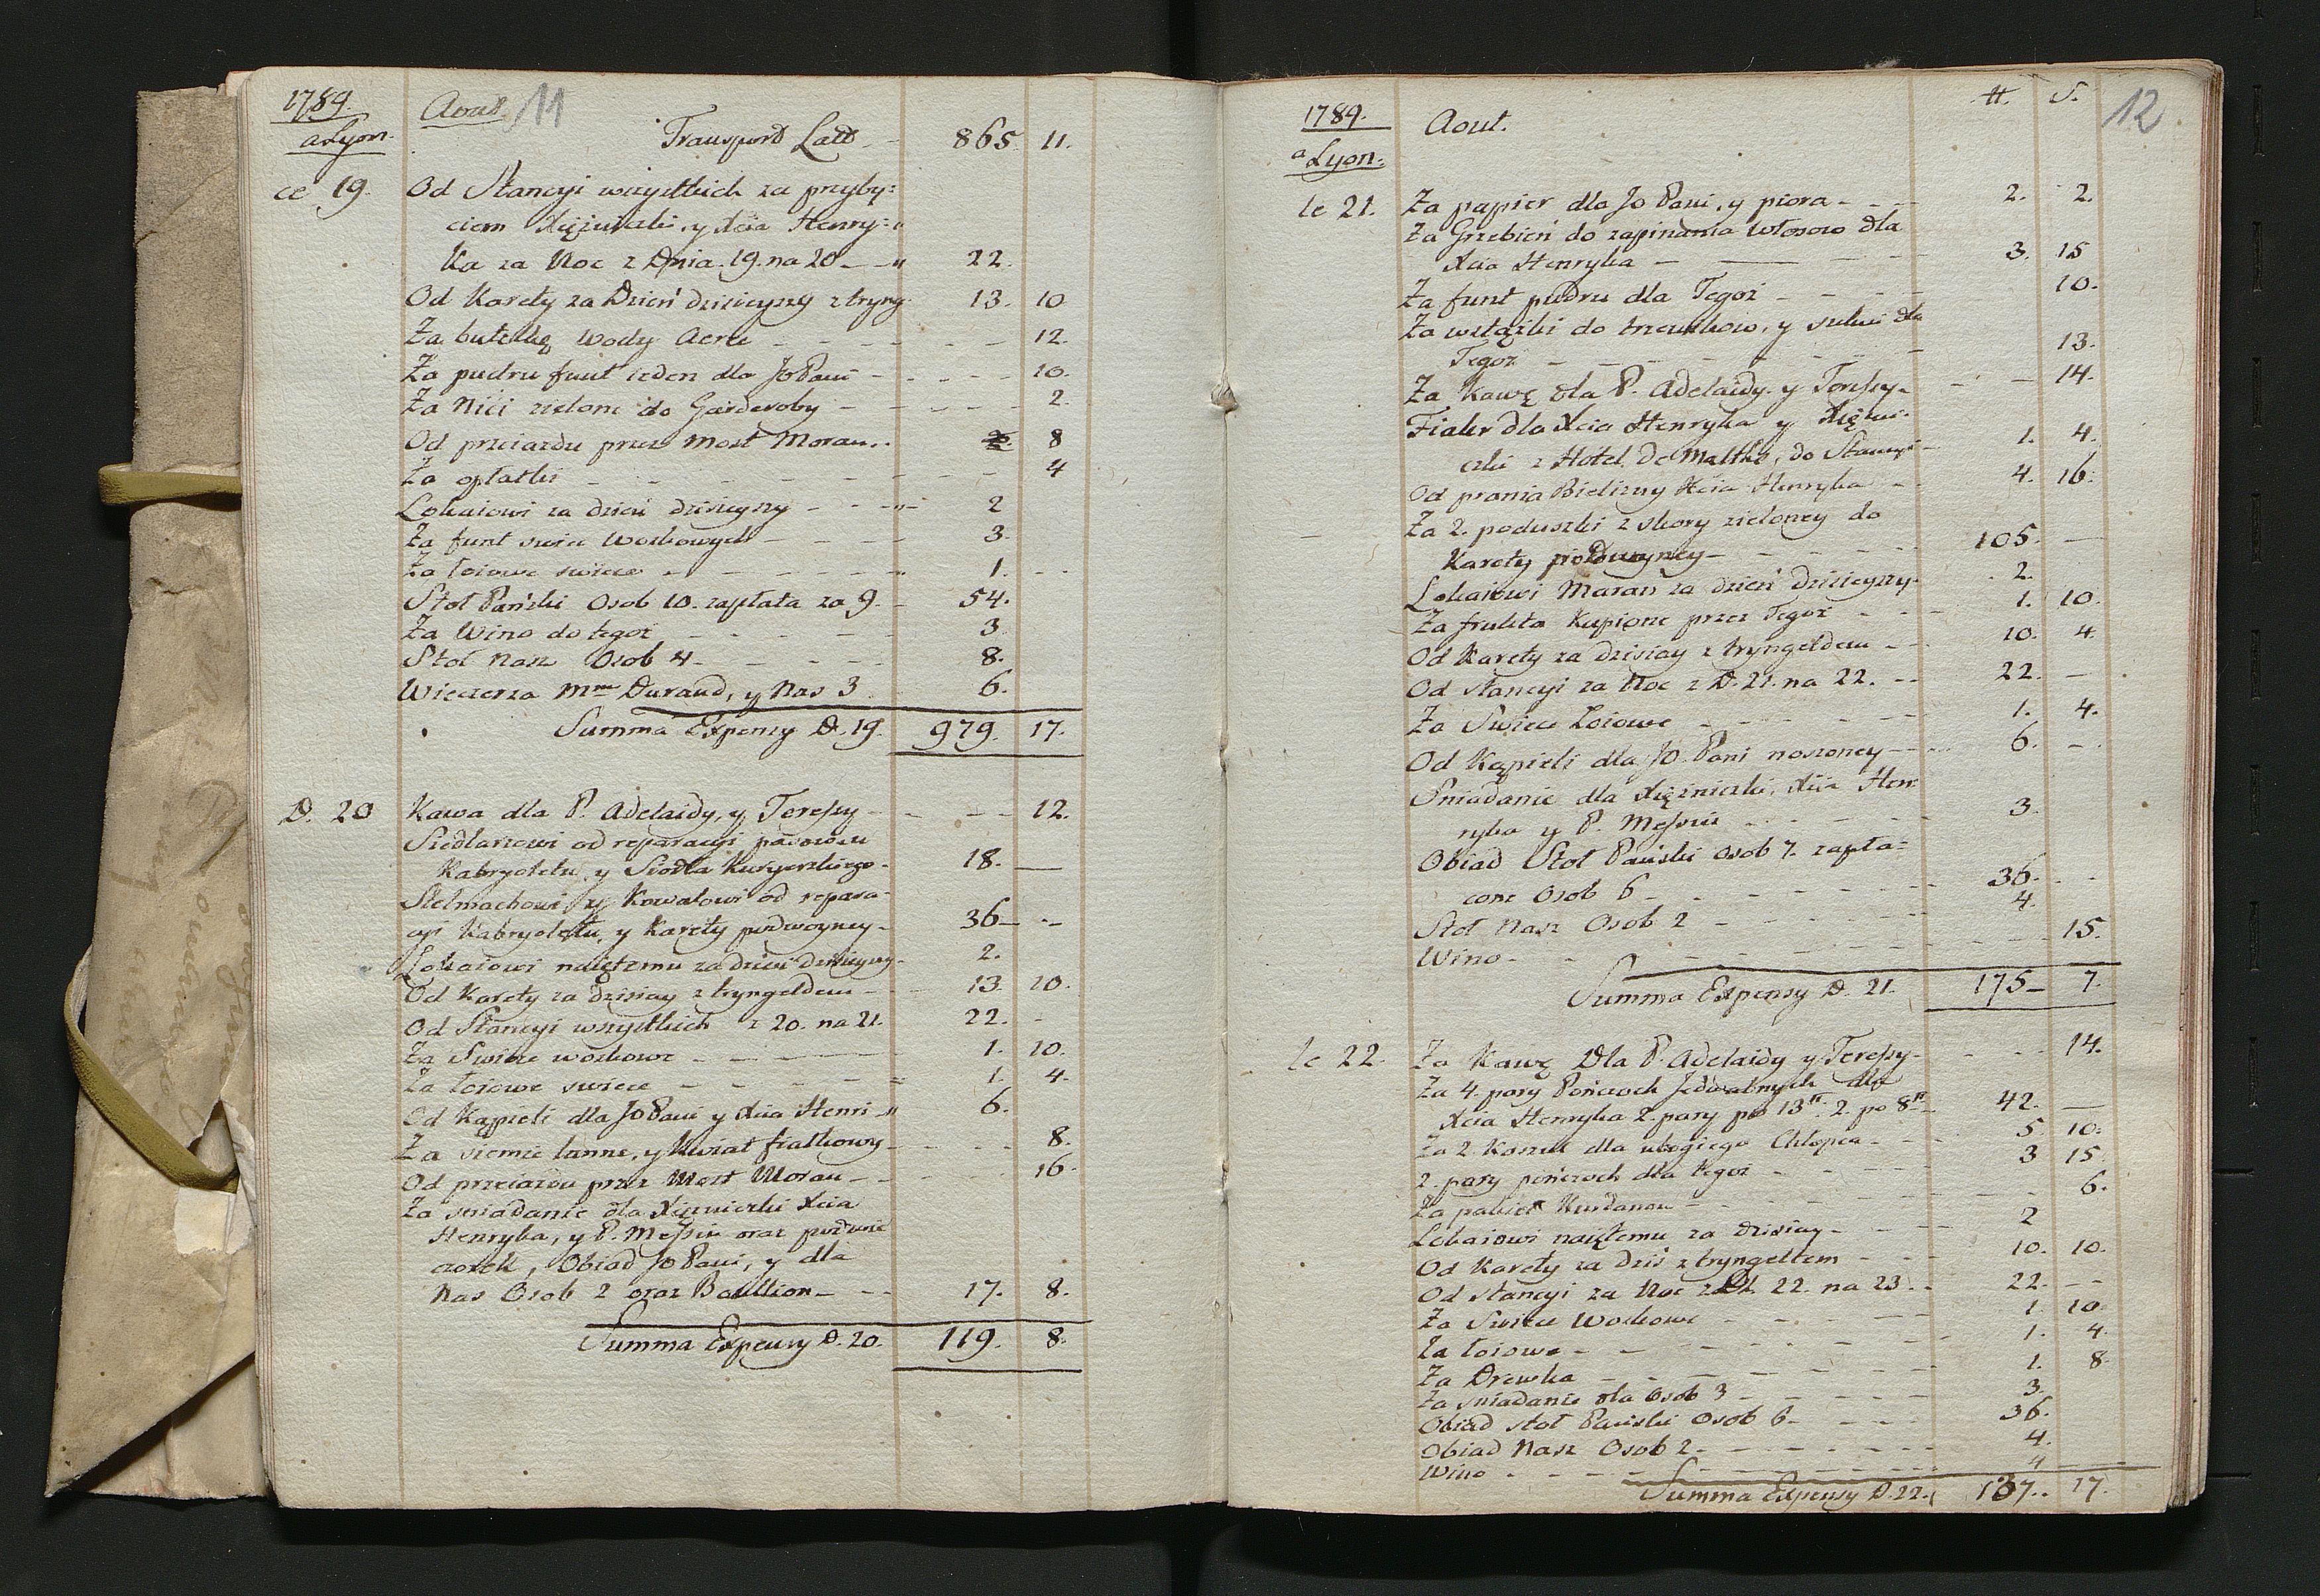 1789. Aout. 11
a Lyon. Transport Latt 865. 11.
ce 19. Od Stancyi wszystkich za przyby=
ciem Xiężniczki, y Xcia Henry=
ka za Noc z Dnia. 19. na 20 22.
Od Karety za Dzień dzisieyszy z tryng. 13. 10
Za butelkę Wody 12.
Za pudru funt ieden dla JO Pani 10.
Za Nici zielone do Garderoby 2.
Od przeiazdu przez Most Moran. 8
Za opłatki 4
Lokaiowi za dzień dzisieyszy 2
Za funt swiec Woskowych 3.
Za łoiowe swiece 1.
Stoł Pański Osob 10. zapłata za 9. 54.
Za Wino do tegoż 3
Stoł Nasz Osob 4 8.
Wieczerza Mme Durand, y Nas 3 6.
Summa Expensy D. 19. 979. 17.
D. 20 Kawa dla P. Adelaidy, y Teressy 12.
Siedlarzowi od reparacyi passow u
Kabryoletu, y Siodła Kuryerskiego 18. —
Stelmachowi, y Kowalowi od repara=
cyi Kabryoletu, y Karety podwoyney 36 —
Lokaiowi naiętemu za dzień dzisieyszy 2.
Od Karety za dzisiay z tryngeldem 13. 10.
Od Stancyi wszystkich z 20. na 21. 22. -
Za Swiece woskowe 1. 10.
Za łoiowe swiece 1. 4.
Od Kąpieli dla JO Pani y Xcia Henri 6.
Za siemie lanne, y Kwiat fiałkowy 8.
Od przeiazdu przez Most Moran 16.
Za sniadanie dla Xiężniczki Xcia
Henryka, y P. Messin oraz podwie
czorek, Obiad JO Pani, y dla
Nas Osob 2 oraz Boullion 17. 8.
Summa Expensy D. 20. 119. 8.
1789. Aout. tt. S. 12
a Lyon.
le 21. Za papier dla JO Pani, y piora 2. 2.
Za Grzebień do zapinania Włosow dla
Xcia Henryka 3. 15
Za funt pudru dla Tegoż 10.
Za wstążki do trzewikow, y sukni dla
Tegoż 13.
Za Kawę dla P. Adelaidy y Teressy 14.
Fiakr dla Xcia Henryka y Xiężni=
czki z Hotel de Malthe, do Stancyi 1. 4.
Od prania Bielizny Xcia Henryka 4. 16.
Za 2. poduszki z skory zieloney do
Karety podwoyney 105. —
Lokaiowi Maran za dzień dzisieyszy 2.
Za frukta Kupione przez Tegoż 1. 10.
Od Karety za dzisiay z tryngeldem 10. 4.
Od stancyi za Noc z D. 21. na 22. 22. —
Za Swiece Łoiowe 1. 4.
Od Kąpieli dla JO Pani noszoney 6. -
Sniadanie dla Xiężniczki, Xcia Hen
ryka y P. Messin 3.
Obiad Stoł Pański osob 7. zapła=
cone Osob 6 36.
Stoł Nasz Osob 2 4.
Wino 15.
Summa Expensy D. 21. 175 — 7.
le 22. Za Kawę Dla P. Adelaidy y Teressy 14.
Za 4. pary Pończoch Jedwabnych dla
Xcia Henryka 2. pary po 13tt. 2. po 8tt 42. —
Za 2 Koszul dla ubogiego Chłopca 5 10.
2. pary pończoch dla tegoż 3 15.
Za 6.
Lokaiowi naiętemu za dzisiay 2
Od Karety za dziś z tryngeltem 10. 10.
Od stancyi za Noc z D. 22. na 23. 22. -
Za Swiece Woskowe 1. 10
Za łoiowe 1. 4.
Za Drewka 1. 8
Za sniadanie dla Osob 3 3.
Obiad stoł Pański Osob 6 36.
Obiad Nasz Osob 2. 4.
Wino 4
Summa Expensy D. 22. 137. 17.